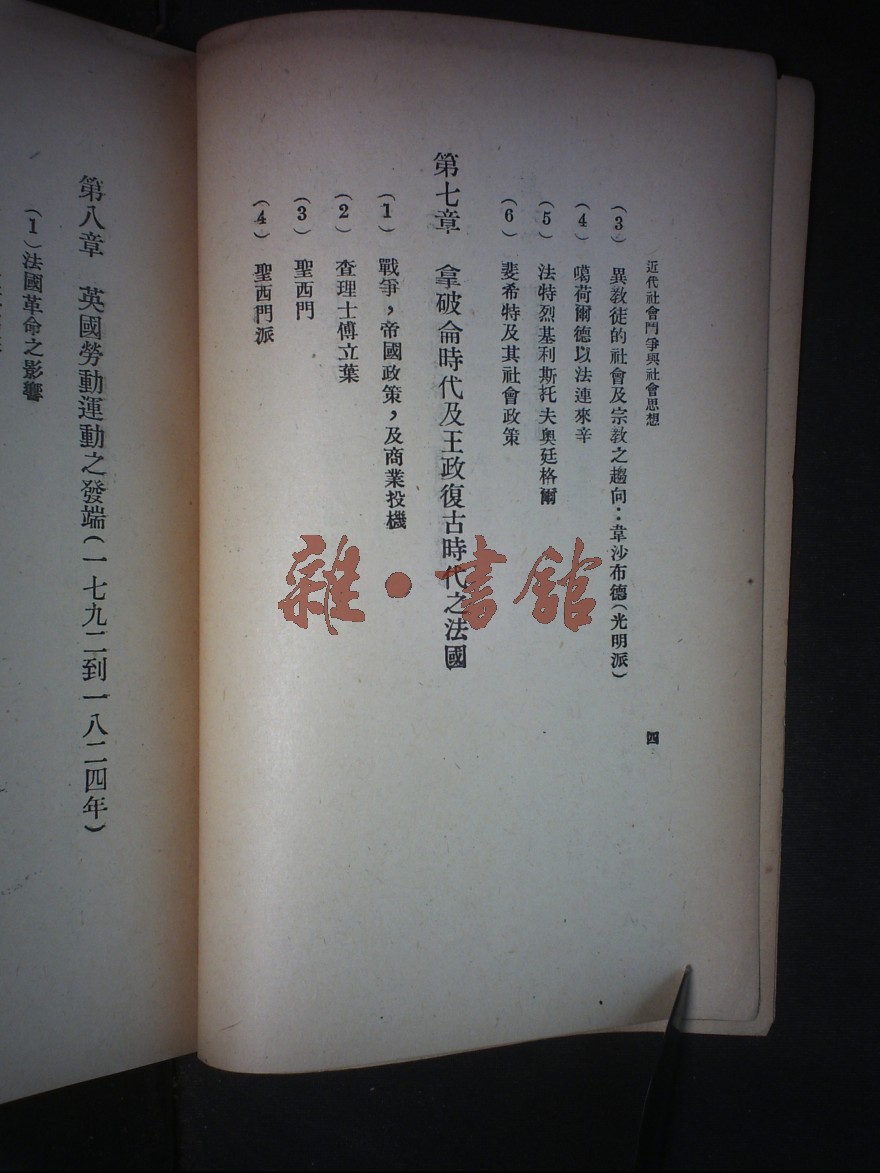 近代社會鬥爭與社會思想
四
(3) 異教徒的社會及宗教之趨向：韋沙布德(光明派)
(4) 噶荷爾德以法連來辛
(5) 法特烈基利斯托夫奧廷格爾
(6) 斐希特及其社會政策
第七章 拿破侖時代及王政復古時代之法國
(1) 戰爭，帝國政策，及商業投機
(2) 查理士傅立葉
(3) 聖西門
(4) 聖西門派
第八章 英國勞動運動之發端(一七九二到一八二四年)
(1)法國革命之影響
雜·書館